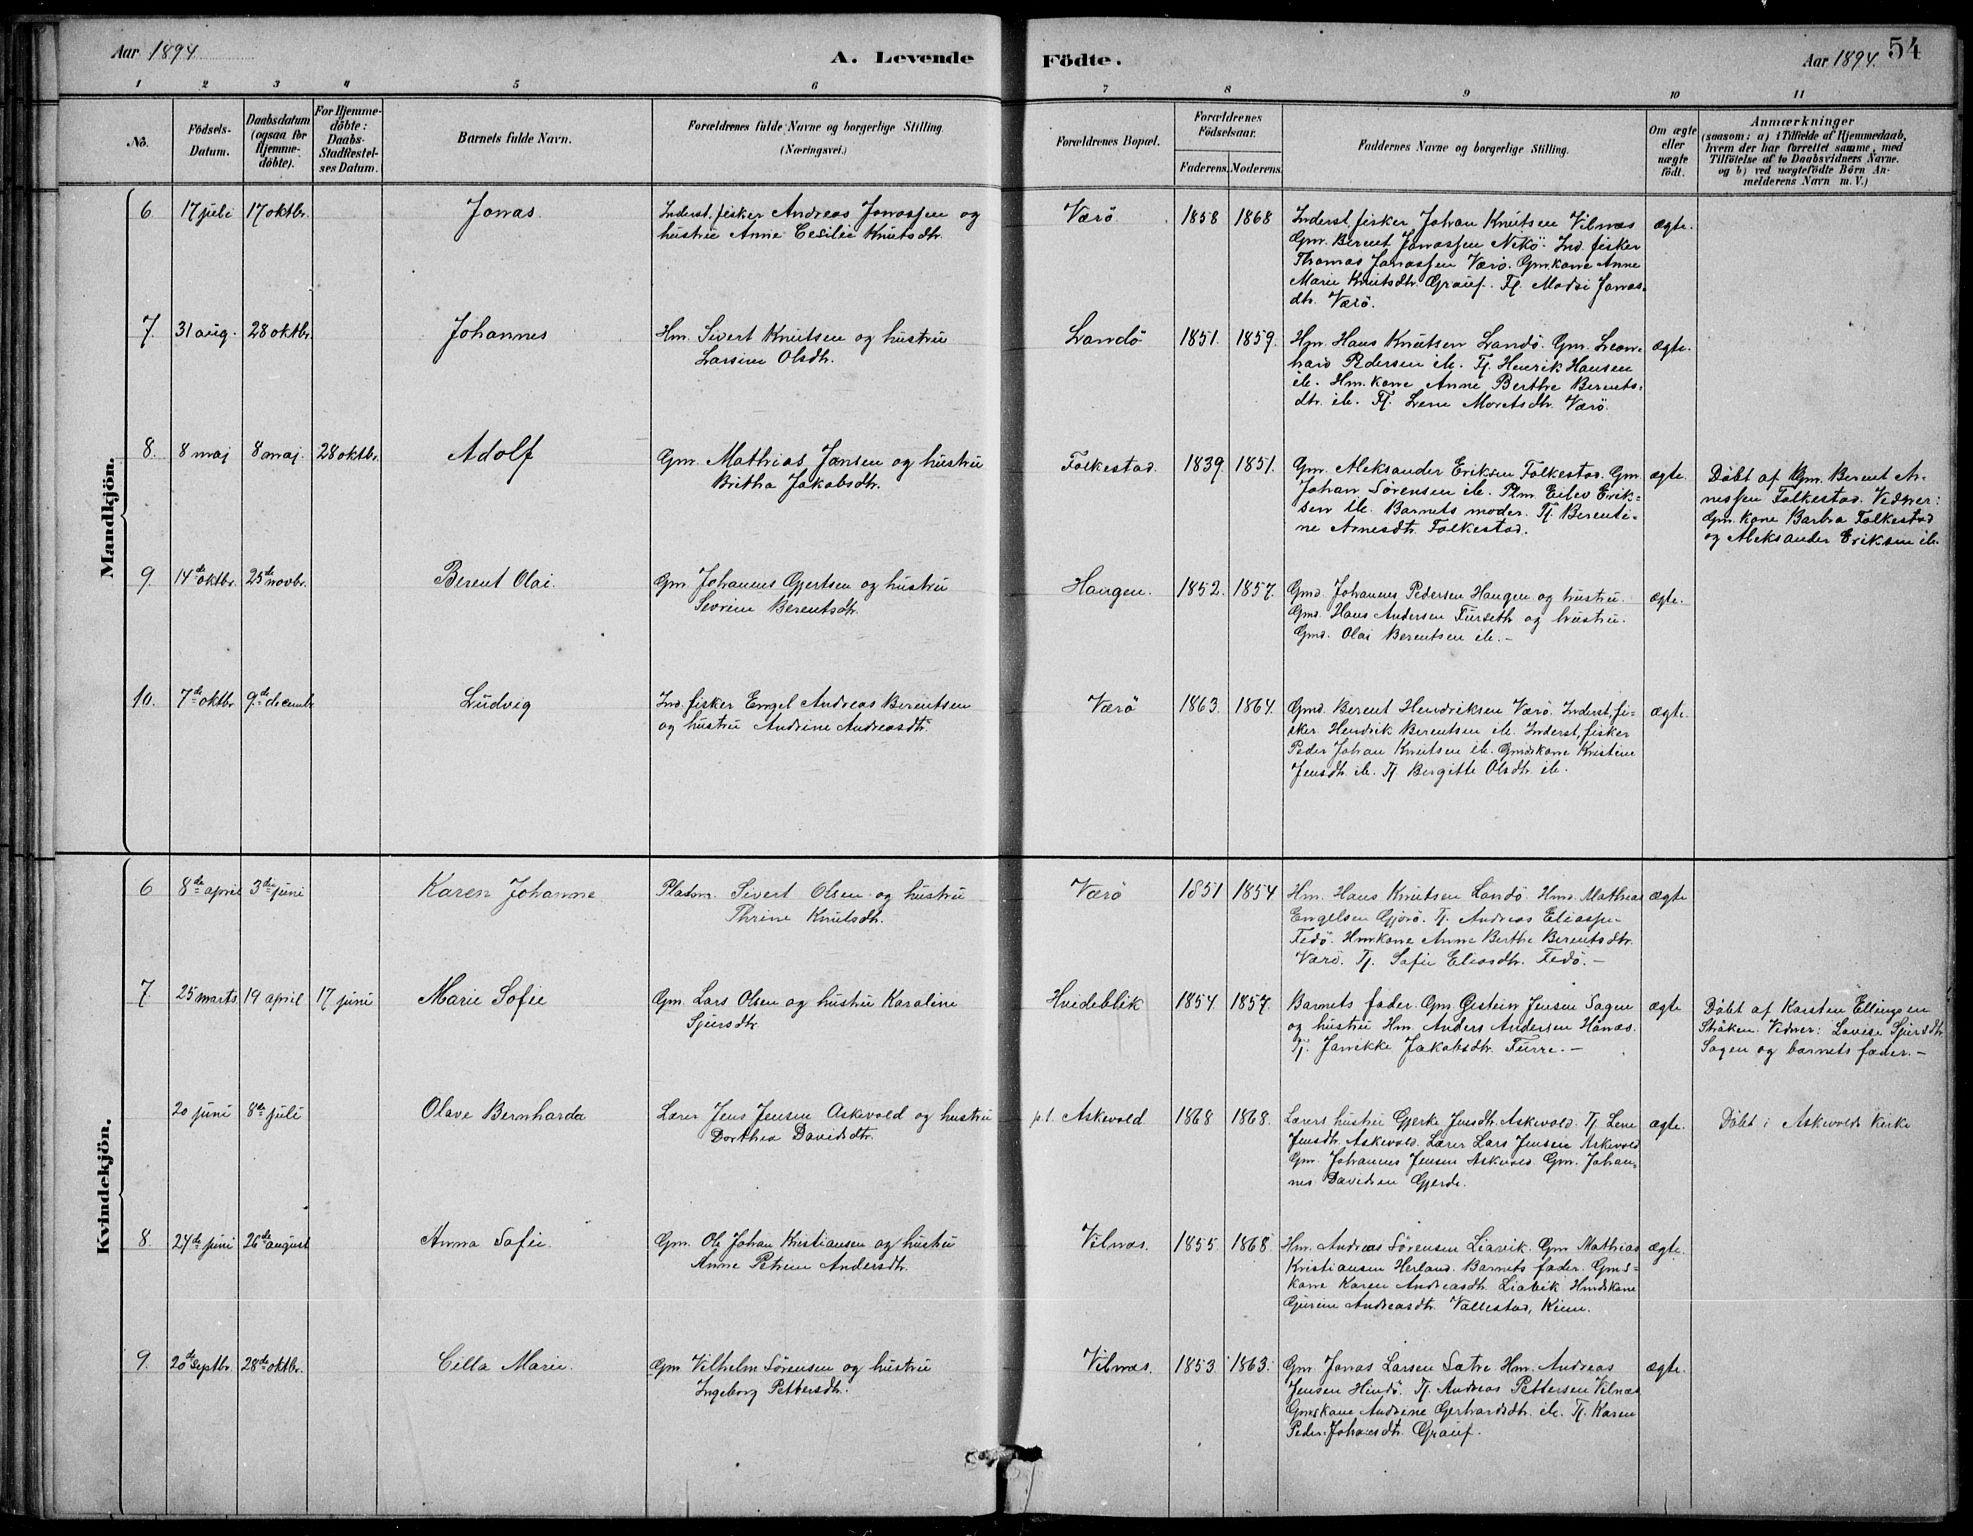 Aar 1894
A. Levende
Födte.
Aar 1894.
54
1 2 3 4 5 6 7 8 9 10 11
No.
Födsels-
Datum.
Daabsdatum
(ogsaa for
Hjemme-
döbte).
For Hjemme-
döbte:
Daabs-
Stadfæstel-
ses Datum.
Barnets fulde Navn.
Forældrenes fulde Navne og borgerlige Stilling.
(Næringsvei.)
Forældrenes Bopæl.
Forældrenes
Födselsaar.
Faderens. Moderens.
Faddernes Navne og borgerlige Stilling.
Om ægte
eller
uægte
födt.
Anmærkninger
(saasom: a) i Tilfælde af Hjemmedaab,
hvem der har forrettet samme, med
Tilföielse af to Daabsvidners Navne.
og b) ved uægtefödte Börn An-
melderens Navn m. V.)
Mandkjön.
6. 17 juli 17 oktbr. Jonas.
Inderst, fisker Andreas Jonassen og
hustru Anne Cesilie Knutsdtr.
Værö. 1858 1868
Inderst, fisker Johan Knutsen Vilnæs
Gm. Berent Jonassen Nekö. Ind. fisker
Thomas Jonassen Værö. Gm.kone Anne
Marie Knutsdtr. Grauf. Tj. Madsi Jonas-
dtr. Værö.
ægte.
7. 31 aug. 28 oktbr. Johannes
Hm. Sivert Knutsen og hustru
Larsine Olsdtr.
Landö 1851. 1859.
Hm. Hans Knutsen Landö. Gm. Leon-
hard Pedersen ib. Tj. Henrik Hansen
ib. Hm. kone Anne Berthe Berents-
dtr. ib. Tj. Lene Moretsdtr. Værö.
ægte.
8. 8 maj 8 maj. 28 oktbr. Adolf
Gm. Mathias Jansen og hustru
Britha Jakobsdtr.
Folkestad. 1839. 1851.
Gm. Aleksander Eriksen Folkestad. Gm.
Johan Sörensen ib. Plm. Eilev Erik-
sen ib. Barnets moder. Tj. Berenti-
ne Arnesdtr. Folkestad.
ægte.
Döbt af Gm. Berent Ar-
nessen Folkestad. Vidner:
Gm. kone Barbra Folkestad
og Aleksander Eriksen ib.
9. 14de oktbr. 25de novbr. Berent Olai.
Gm. Johannes Gjertsen og hustru
Sevrine Berentsdtr.
Haugen. 1852. 1857.
Gmd. Johannes Pedersen Haugen og hustru.
Gmd. Hans Andersen Furseth og hustru.
Gmd. Olai Berentsen ib. –
ægte.
10. 7de oktbr 9de decembr Ludvig
Ind. fisker Engel Andreas Berentsen
og hustru Andrine Andreasdtr.
Værö 1863. 1864.
Gmd. Berent Hendriksen Værö. Inderst, fi-
sker Hendrik Berentsen ib. Inderst, fisker
Peder Johan Knutsen ib. Gmdskone Kristine
Jensdtr. ib. Tj. Bergitte Olsdtr. ib.
ægte.
Kvindekjön.
6 8de april 3die juni Karen Johanne
Pladsm. Sivert Olsen og hustru
Thrine Knutsdtr.
Værö 1851 1854.
Hm. Hans Knutsen Landö. Hmd. Mathias
Engelsen Gjörö. Tj. Andreas Eliasse-
Fedö. Hm.kone Anne Berthe Berentsdtr.
Værö. Tj. Sofie Eliasdtr. Fedö. –
ægte
7 25 marts 19 april 17 juni Marie Sofie
Gm. Lars Olsen og hustru Karoline
Sjursdtr.
Hvideblik 1854 1857.
Barnets fader. Gm. Jensen Sagen
og hustru Hm. Anders Andersen Hanæs.
Tj. Janikke Jakobsdtr. Furre. –
ægte
Döbt af Karsten Ellingsen
Stråken. Vidner: Lovise Sjursdtr.
Sagen og barnets fader. –
20 juni 8de juli Olave Bernharda
Lærer Jens Jensen Askevold og hustru
Dorthea Davidsdtr.
p.t. Askevold 1868 1868.
Lærers hustru Gjerke Jensdtr. Askevold. Tj. Lene
Jensdtr. Askevold. Lærer Lars Jensen Askevold
Gm. Johannes Jensen Askevold. Gm. Johan-
nes Davidsen Gjerde.
ægte.
Döbt i Askevolds Kirke
8. 24de juni 26de august Anna Sofie.
Gm. Ole Johan Kristiansen og hustru
Anne Petrine Andersdtr.
Vilnæs. 1855. 1868
Hm. Andreas Sörensen Liavik. Gm. Mathias
Kristiansen Herland. Barnets fader. Gmds-
kone Karen Andreasdtr. Liavik. Hmdskone
Gurine Andreasdtr. Vallestad, Kinn.
ægte.
9. 20de septbr. 28de oktbr. Cilla Marie.
Gm. Vilhelm Sörensen og hustru
Ingeborg Pettersdtr.
Vilnæs. 1853. 1863.
Gm. Jonas Larsen Sætre. Hm. Andreas
Jensen Hindö. Tj. Andreas Pettersen Vilnæs
Gmdskone Andrine Gerhardsdtr. ib. Tj. Karen
Peder-Johansdtr. Grauf.
ægte.